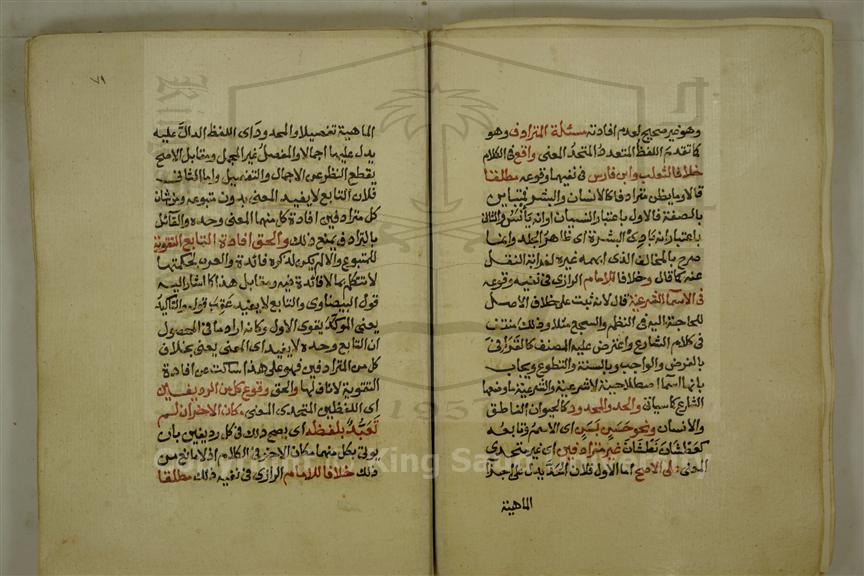 وهو غير صحيح لعدم افادته مسئلة المترادف وهو
كما تقدم اللفظ المتعدد المتحد المعنى واقع في الكلام
خلافا لثعلب وابن فارس في نفيهما وقوعه مطلقا
قالا وما يظن مترادفا كالانسان والبشر فمتباين
بالصفة فالاول باعتبار النسيان او انه يأنس والثاني
باعتبار انه بادي البشرة اي ظاهر الجلد وانما
صرح بالمخالف الذي ابهمه غيره لغرابة النقل
عنه كما قال وخلافا للامام الرازي في نفيه وقوعه
في الاسما الشرعية قال لانه ثبت على خلاف الاصل
للحاجة اليه في النظم والسجع مثلا وذلك منتف
في كلام الشارع واعترض عليه المصنف كالقرافي
بالفرض والواجب وبالسنة والتطوع ويجاب
بانها اسما اصطلاحية لا شرعية والشرعية ما وضعها
الشارع كما سياتي والحد والمحدود كالحيوان الناطق
والانسان ونحو حسن بسن اي الاسم وتابعه
كعطشان نطشان غير مترادفين اي غير متحدي
المعنى على الاصح اما الاول فلان الحد يدل على اجزا
الماهية
٧٩
الماهية تفصيلا والمحدود اي اللفظ الدال عليه
يدل عليها اجمالا والمفصل غير المجمل ومقابل الاصح
يقطع النظر عن الاجمال والتفصيل واما الثاني
فلان التابع لا يفيد المعنى بدون متبوعه ومن شان
كل مترادفين افادة كل منهما المعنى وحده والقائل
بالترادف يمنع ذلك والحق افادة التابع التقوية
للمتبوع والا لم يكن لذكره فائدة والعرب لحكمتها
لا تتكلم بما لا فائدة فيه ومقابل هذا كما اشار اليه
قول البيضاوي والتابع لا يفيد عقب قوله والتاكيد
يعني الموكد يقوي الاول وكانه اراد ما في المحصول
ان التابع وحده لا يفيد اي المعنى يعني بخلاف
كل من المترادفين فهو على هذا ساكت عن افادة
التقوية لا ناف لها والحق وقوع كل من الرديفين
اي اللفظين المتحدي المعنى مكان الاخر ان لم
تعبد بلفظه اي يصح ذلك في كل رديفين بان
يوتى بكل منهما مكان الاخر في الكلام اذ لا مانع من
ذلك خلافا للامام الرازي في نفيه ذلك مطلقا
King Saud University
1957